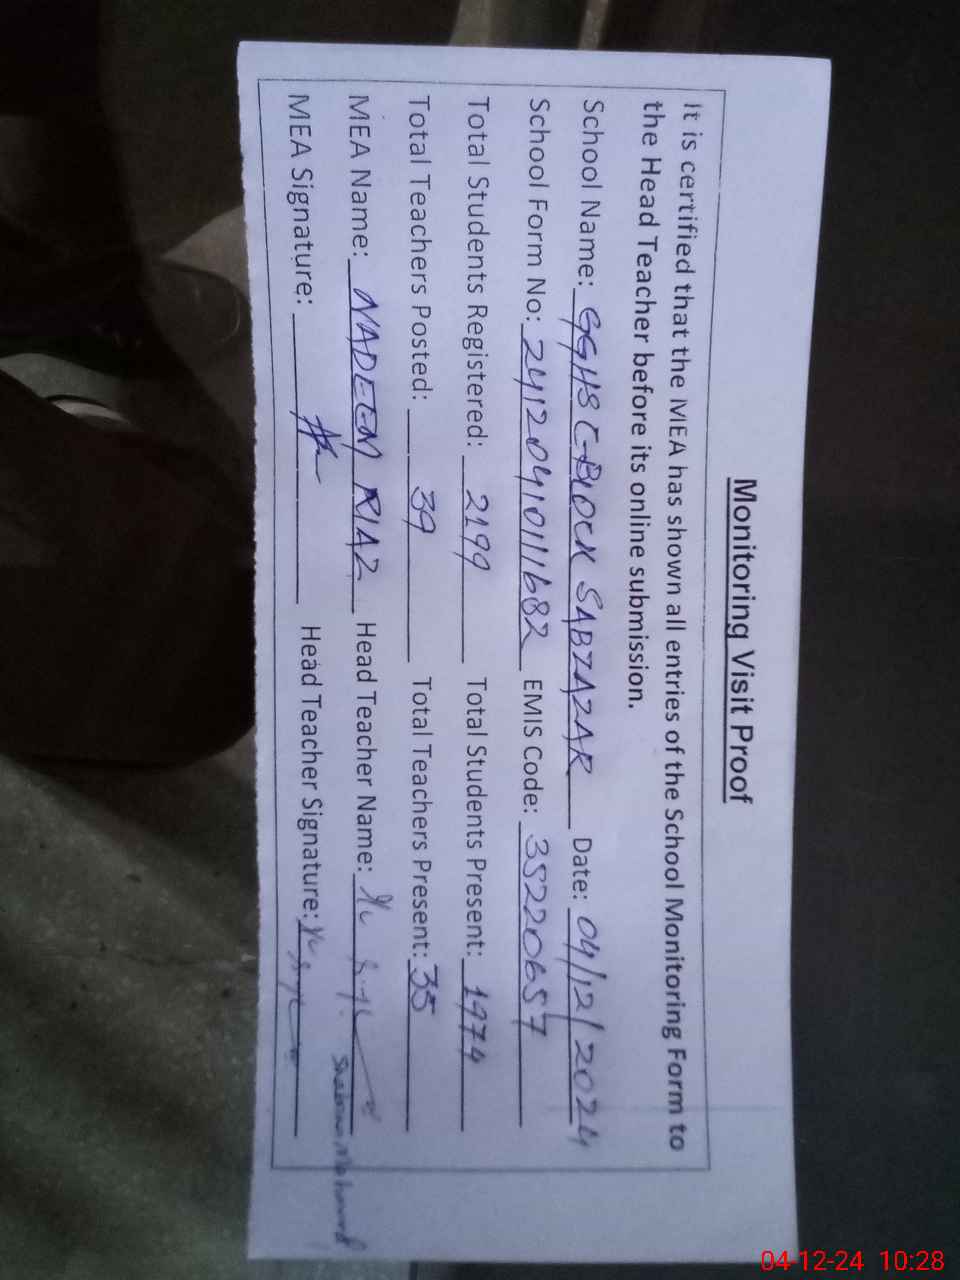 Monitoring Visit Proof
It is certified that the MEA has shown all entries of the School Monitoring Form to
the Head Teacher before its online submission.
School Name: GGHS C-BLOCK SABZAZAR Date: 04/12/2024
School Form No: 24120410111682 EMIS Code: 35220657
Total Students Registered: 2199 Total Students Present: 1974
Total Teachers Posted: 39 Total Teachers Present: 35
MEA Name: NADEEM RIAZ Head Teacher Name:
MEA Signature: Head Teacher Signature:
04-12-24 10:28